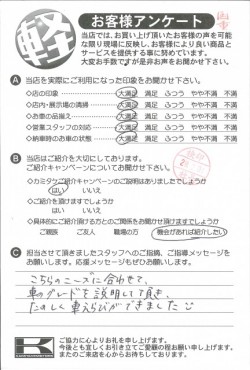 軽
お客様アンケート
当店では、お買い上げ頂いたお客様の声を可能
な限り現場に反映し、お客様により良い商品と
サービスを提供する事に努めています。
大変お手数ですが是非お声をお聞かせ下さい。
A 当店を実際にご利用になった印象をお聞かせ下さい。
◇店の印象 大満足 満足 ふつう やや不満 不満
◇店内・展示場の清掃 大満足 満足 ふつう やや不満 不満
◇お車の品揃え 大満足 満足 ふつう やや不満 不満
◇営業スタッフの対応 大満足 満足 ふつう やや不満 不満
◇納車時のお車の状態 大満足 満足 ふつう やや不満 不満
B 当店はご紹介を大切にしております。
ご紹介キャンペーンについてお聞かせ下さい。
◇カミタケご紹介キャンペーンのご説明はありましたでしょうか
はい いいえ
◇ご紹介を頂けますでしょうか
はい いいえ
◇具体的にご紹介頂ける方とのご関係をお聞かせ頂けますでしょうか
ご親族 ご友人 職場の方 機会があれば紹介したい
C 担当させて頂きましたスタッフへのご指摘、ご指導メッセージを
お願いします。応援メッセージもぜひお願いします。
こちらのニーズに合わせて、
車のグレードを説明して頂き、
たのしく車えらびができました
K
ご協力に心よりお礼を申し上げます。
今後とも宜しくお引き立てご愛顧の程お願い申し上げます。
またのご来店を心からお待ちしております。